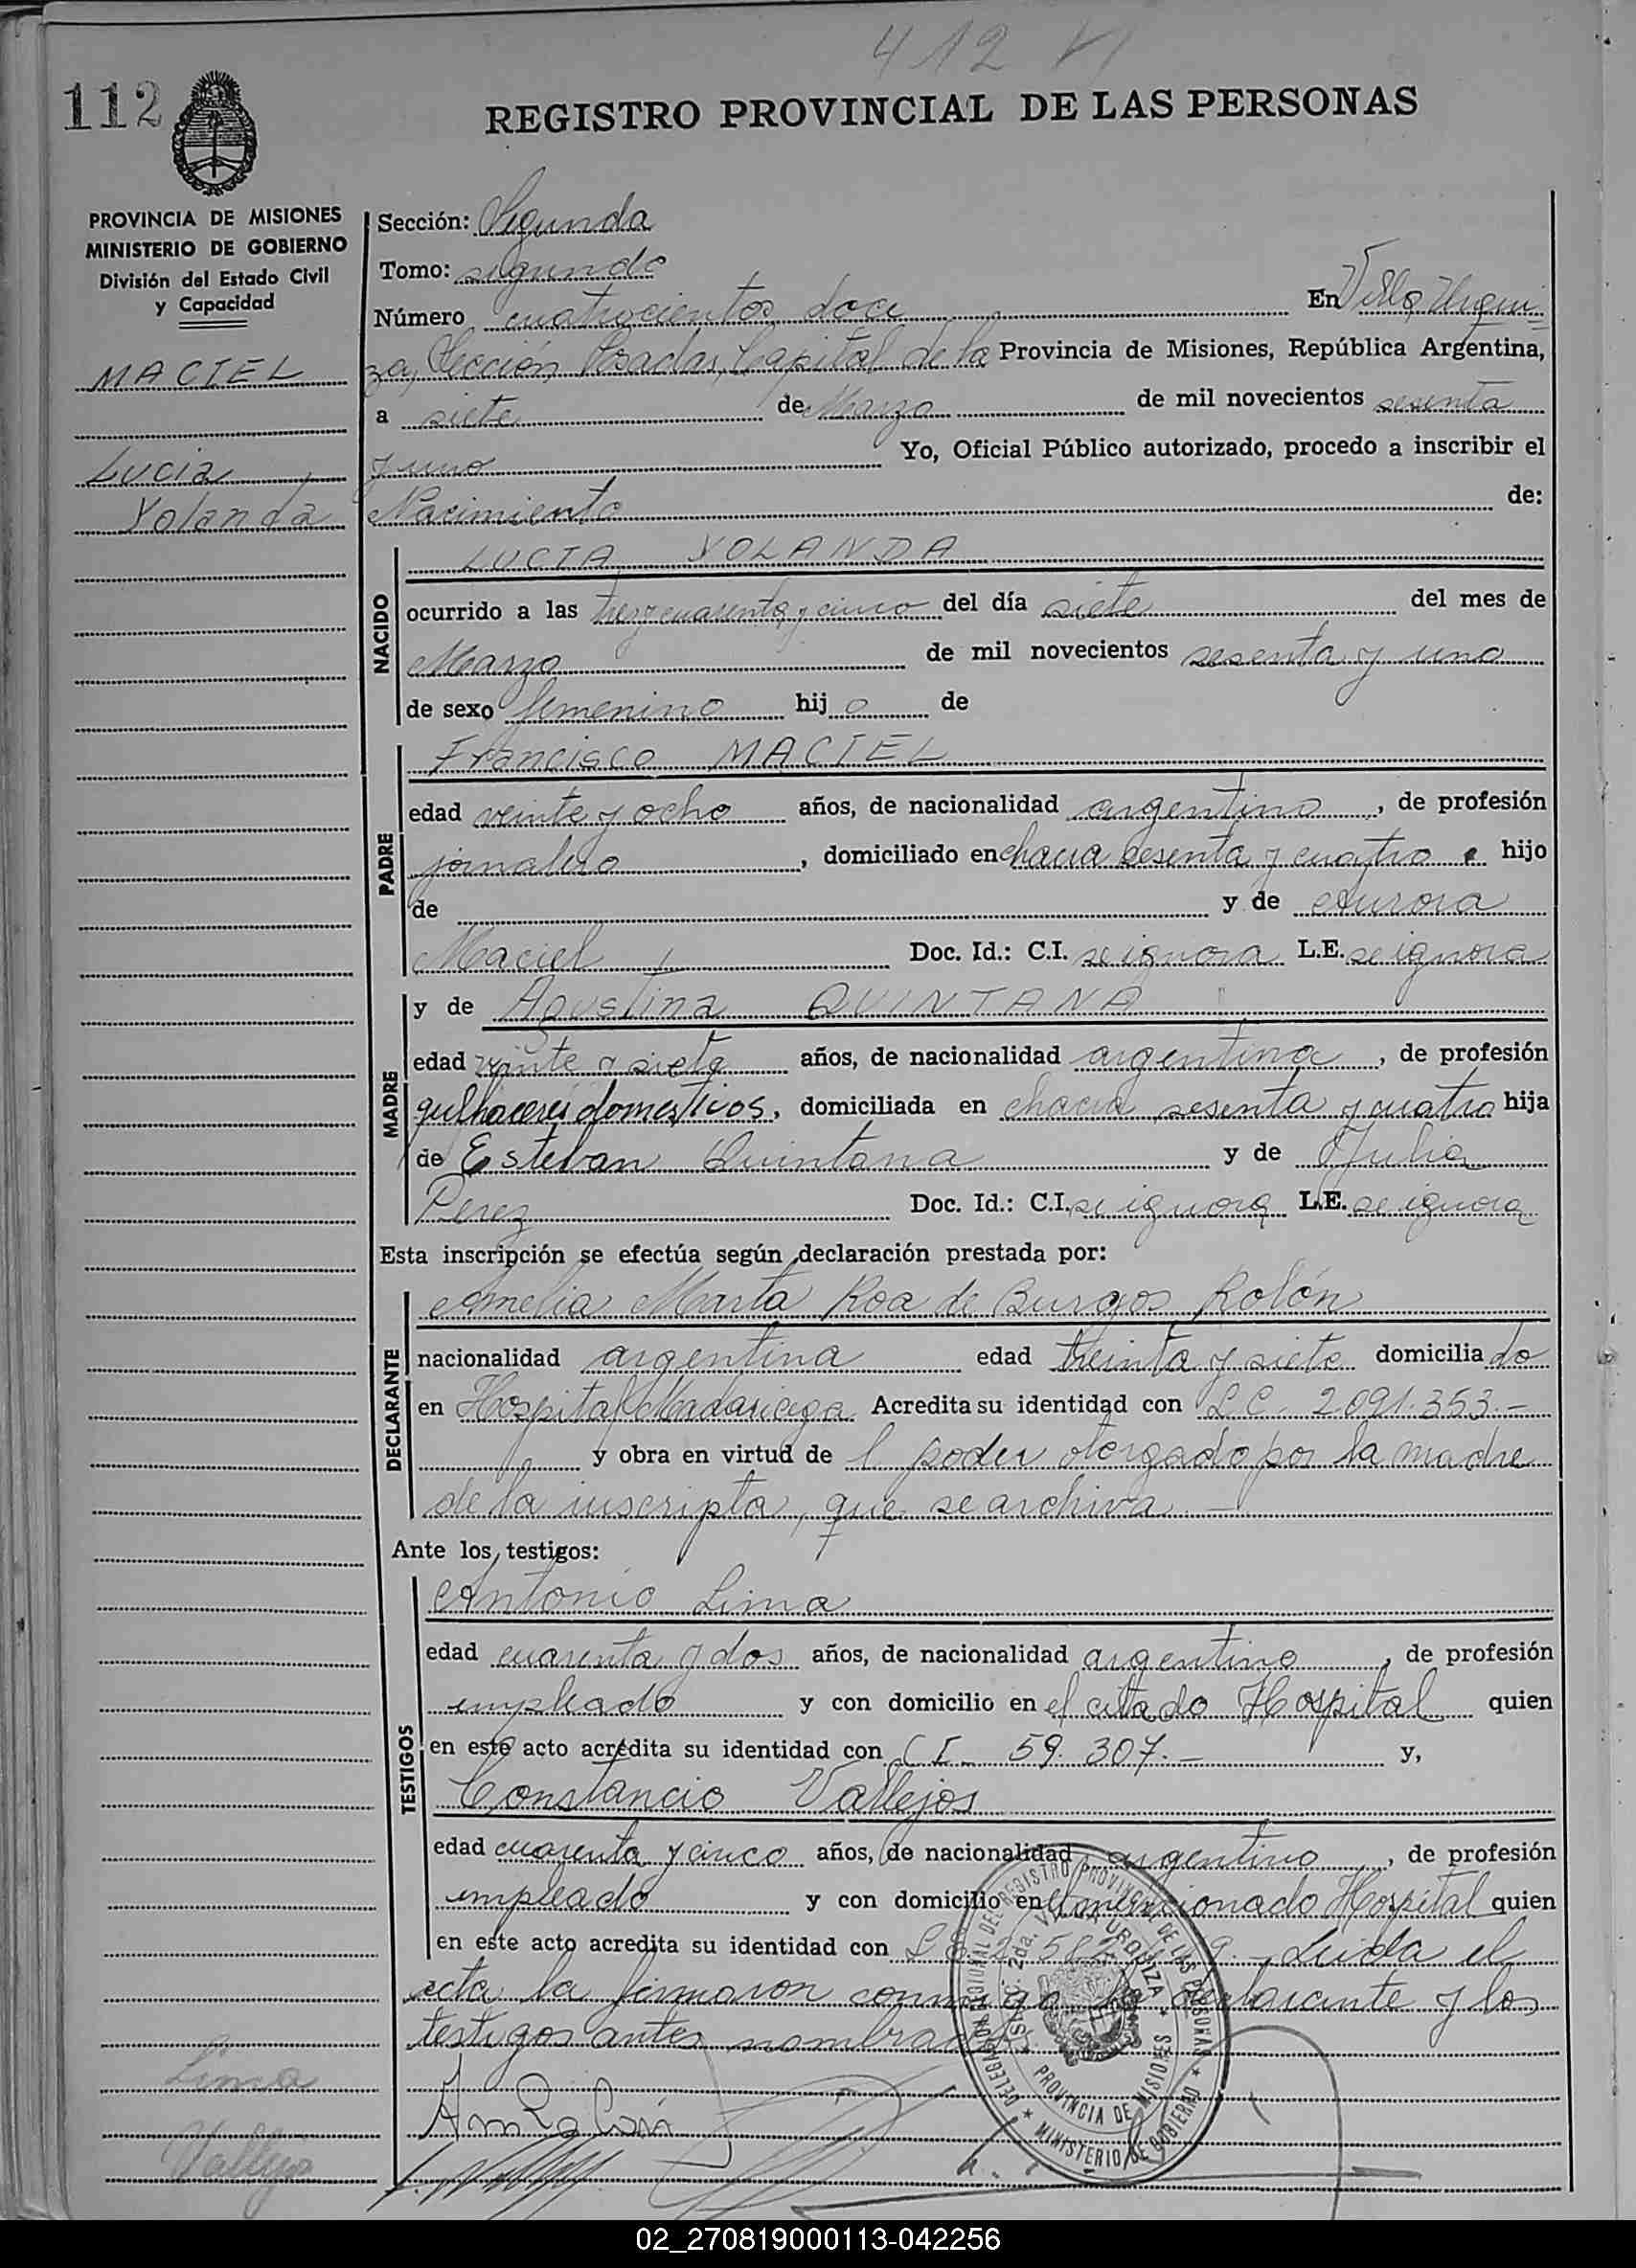 412 VI
112
REGISTRO PROVINCIAL DE LAS PERSONAS
PROVINCIA DE MISIONES
MINISTERIO DE GOBIERNO
División del Estado Civil
y Capacidad
MACIEL
Lucia
Yolanda
Sección: Segunda
Tomo: segundo
Número cuatrocientos doce En Villa Urqui-
za, Sección Posadas, Capital de la Provincia de Misiones, República Argentina,
a siete de Marzo de mil novecientos sesenta
y uno Yo, Oficial Público autorizado, procedo a inscribir el
Nacimiento de:
NACIDO
LUCIA YOLANDA
ocurrido a las tres y cuarenta y cinco del día siete del mes de
Marzo de mil novecientos sesenta y uno
de sexo femenino hij a de
PADRE
Francisco MACIEL
edad veinte y ocho años, de nacionalidad argentino, de profesión
jornalero, domiciliado en chacra sesenta y cuatro hijo
de y de Aurora
Maciel Doc. Id.: C.I. se ignora L.E. se ignora
MADRE
y de Agustina QUINTANA
edad veinte y siete años, de nacionalidad argentina, de profesión
quehaceres domesticos, domiciliada en chacra sesenta y cuatro hija
de Esteban Quintana y de Julia
Perez Doc. Id.: C.I. se ignora L.E. se ignora
Esta inscripción se efectúa según declaración prestada por:
DECLARANTE
Amelia Marta Roa de Burgos Rolón
nacionalidad argentina edad treinta y siete domiciliado
en Hospital Madariaga Acredita su identidad con L.C. 2.091.353.-
y obra en virtud de l poder otorgado por la madre
de la inscripta, que se archiva.-
Ante los testigos:
TESTIGOS
Antonio Lima
edad cuarenta y dos años, de nacionalidad argentino, de profesión
empleado y con domicilio en el citado Hospital quien
en este acto acredita su identidad con C I - 59.307.- y,
Constancio Vallejos
edad cuarenta y cinco años, de nacionalidad argentino, de profesión
empleado y con domicilio en el mencionado Hospital quien
en este acto acredita su identidad con Leida el
acta la firmaron conmigo la declarante y los
testigos antes nombrados
DELEGACION SECCIONAL DEL REGISTRO PROVINCIAL DE LAS PERSONAS
2da. VILLA URQUIZA
PROVINCIA DE MISIONES
MINISTERIO DE GOBIERNO
Lima
Vallejo
02_270819000113-042256